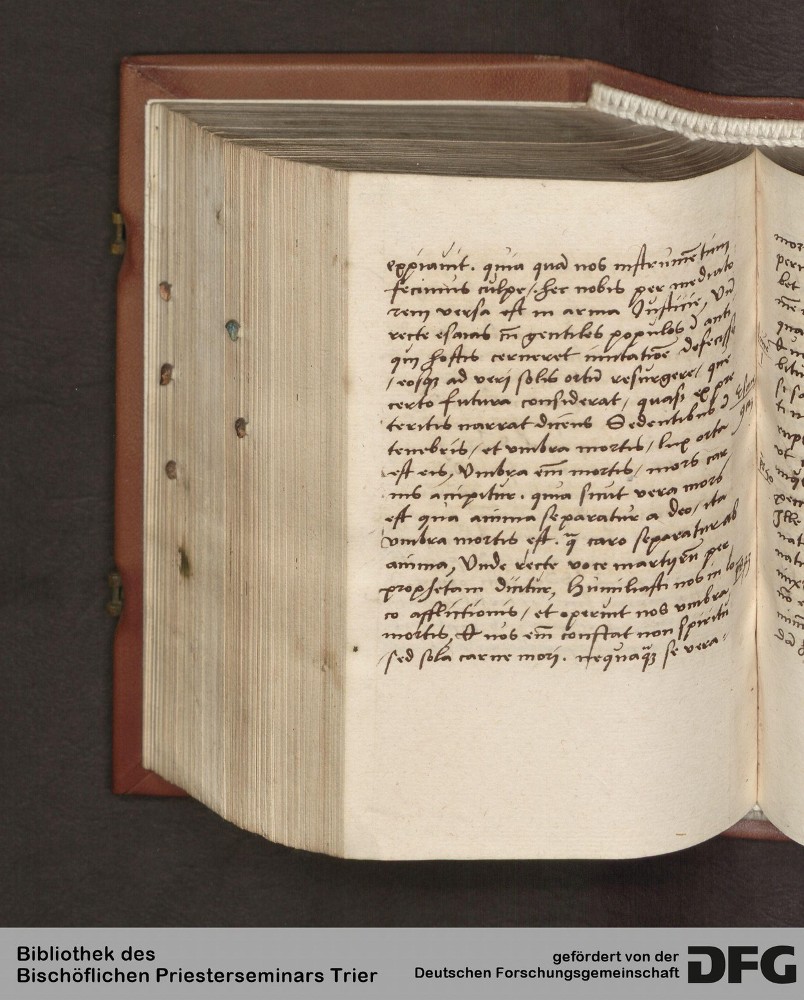 expiavit. quia quā nos instrumētum
fecimus culpe/ hec nobis per mediato
rem versa est in arma Iusticie, Vñ
recte esaias cū gentiles populos ī anti
qui hostis cerneret imitatiōe defecisse
/eosq3 ad veri solis ortū resurgere/ que
certo futura considerat/ quasi ex pre
teritis narrat dicens Sedentibus ī
tenebris/ et umbra mortis/ lux orta
est eis, Umbra em̄ mortis/ mors car
nis accipitur. quia sicut vera mors
est qua anima separatur a deo/ ita
umbra mortis est. q̄ caro separatur ab
anima, Unde recte voce martyrū per
prophetam dicitur, Humiliasti nos in lo
co afflictionis/ et operuit nos umbra
mortis, Et nos em̄ constat non spiritu
/sed sola carne mori. nequaq̄3 se vera-
Bibliothek des
Bischöflichen Priesterseminars Trier
gefördert von der
Deutschen Forschungsgemeinschaft
DFG